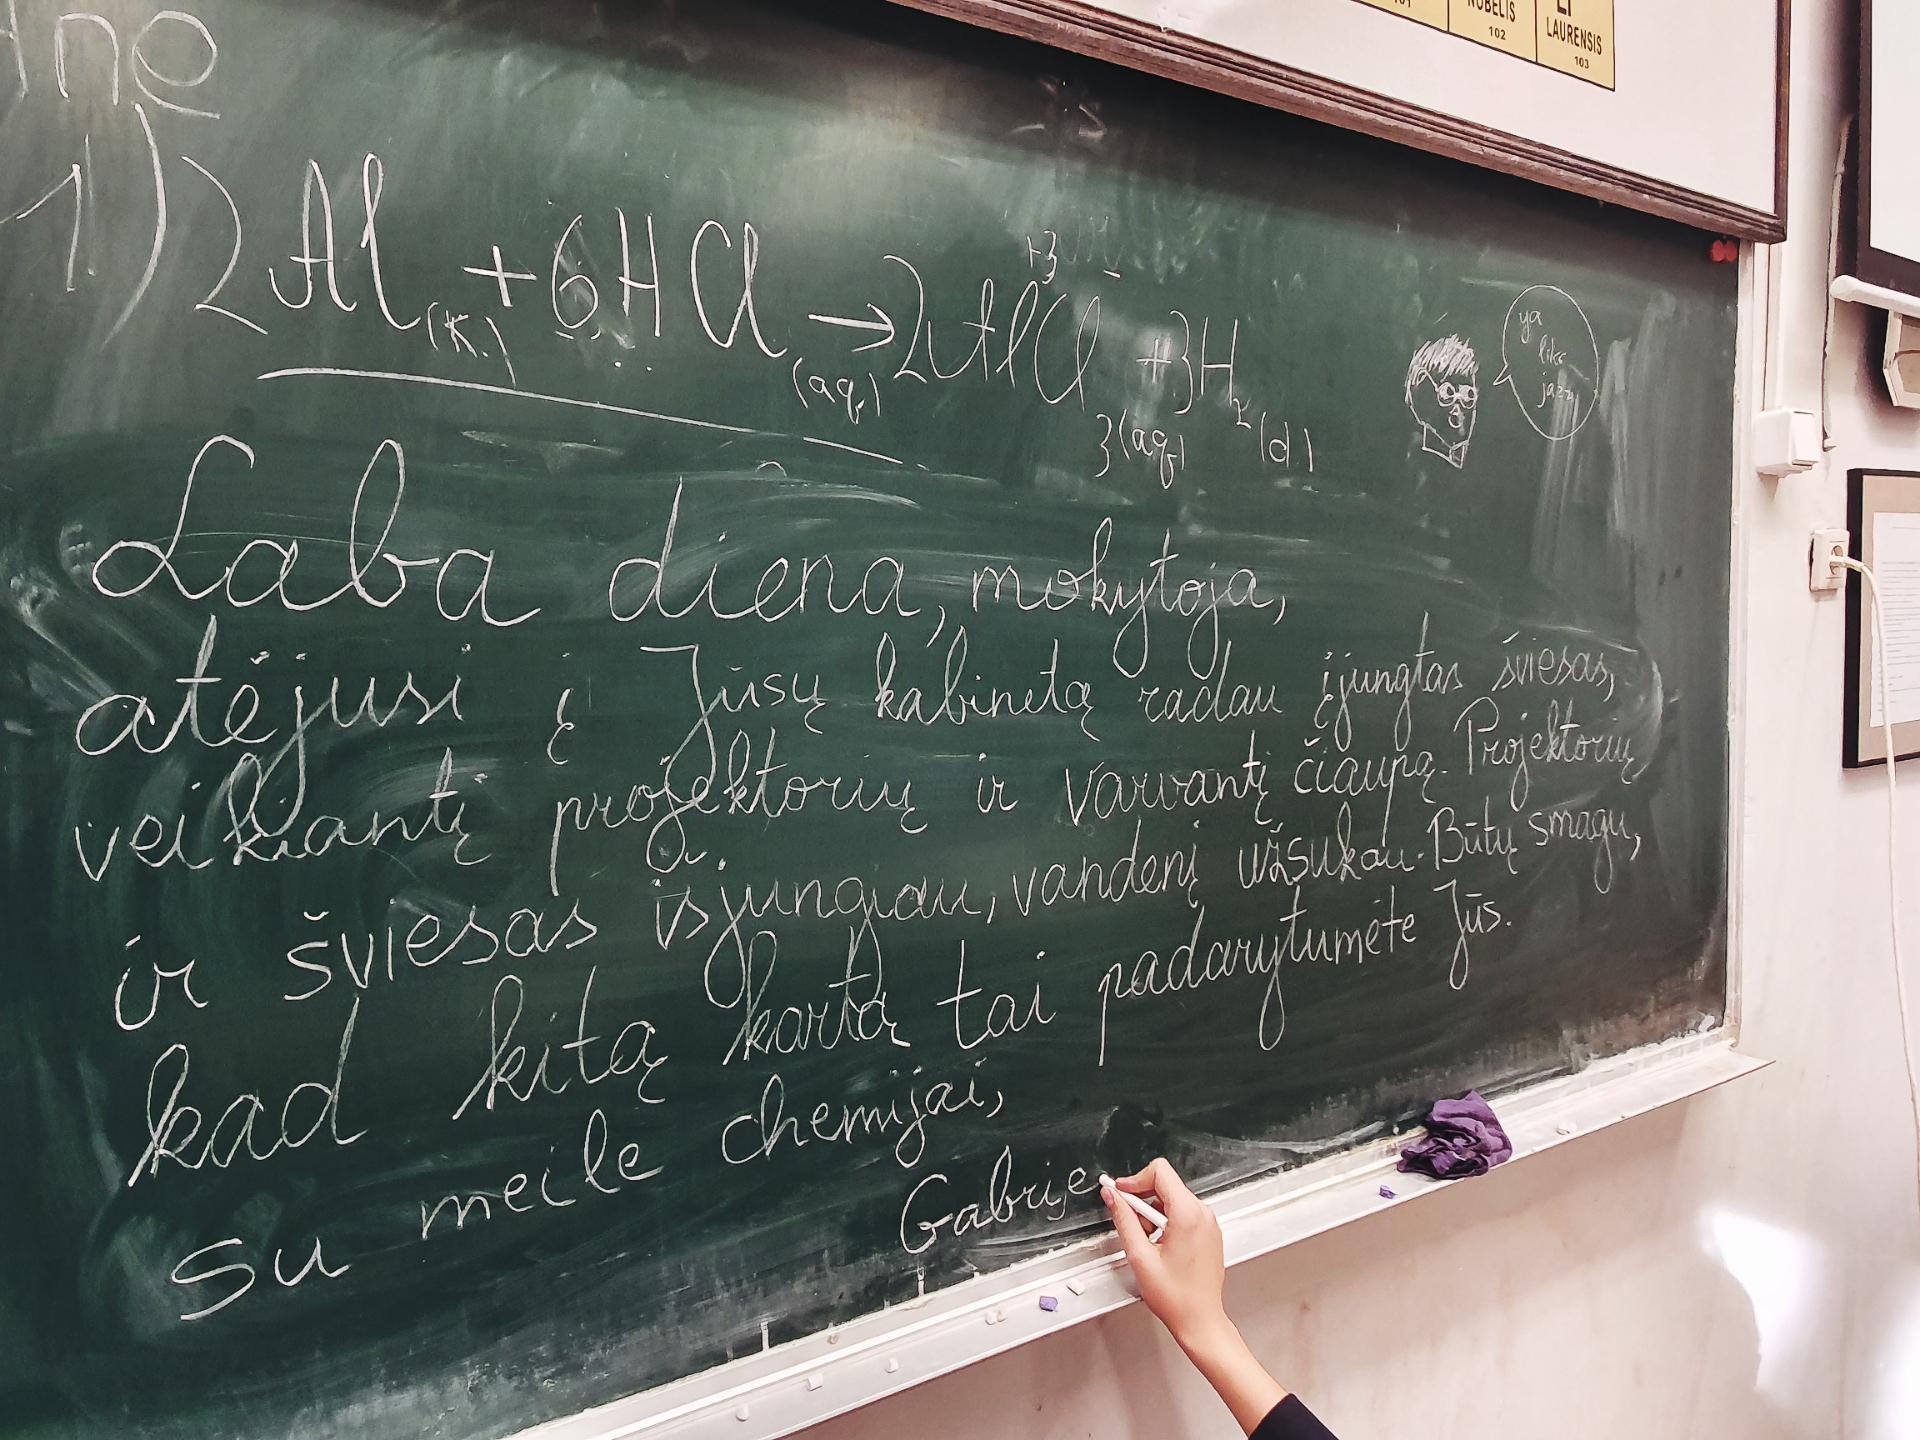 101 NOBELIS LAURENSIS
102 103
1) 2Al(k.) + 6HCl(aq.) → 2AlCl3(aq.) + 3H2(d)
+3 -
ya
like
jazz
Laba diena, mokytoja,
atėjusi į Jūsų kabinetą radau įjungtas šviesas,
veikiantį projektorių ir varvantį čiaupą. Projektorių
ir šviesas išjungiau, vandenį užsukau. Būtų smagu,
kad kitą kartą tai padarytumėte Jūs.
su meile chemijai,
Gabrie